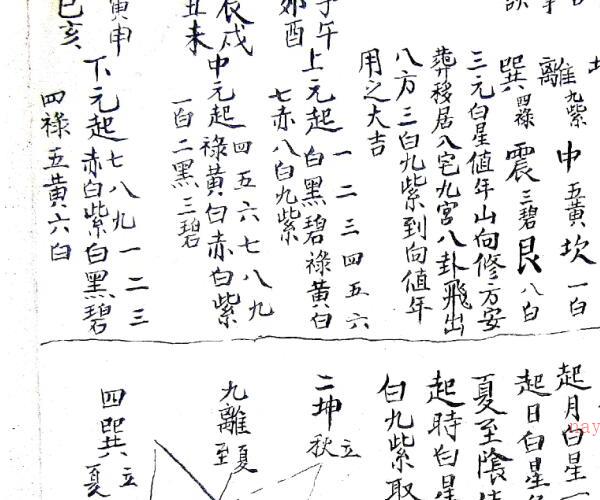 離九紫 中五黃 坎一白
巽四祿 震三碧 艮八白
三元白星值年山向修方安
葬移居八宅九宮八卦飛出
八方三白九紫到向值年
用之大吉
子午
卯酉
上元起一白二黑三碧四祿五黃六白
七赤八白九紫
辰戌
丑未
中元起四祿五黃六白七赤八白九紫
一白二黑三碧
寅申
巳亥
下元起七赤八白九紫一白二黑三碧
四祿五黃六白
起月白星一
起日白星
夏至陰
起時白星
白九紫取
二坤立秋
九離夏至
四巽立夏
nay